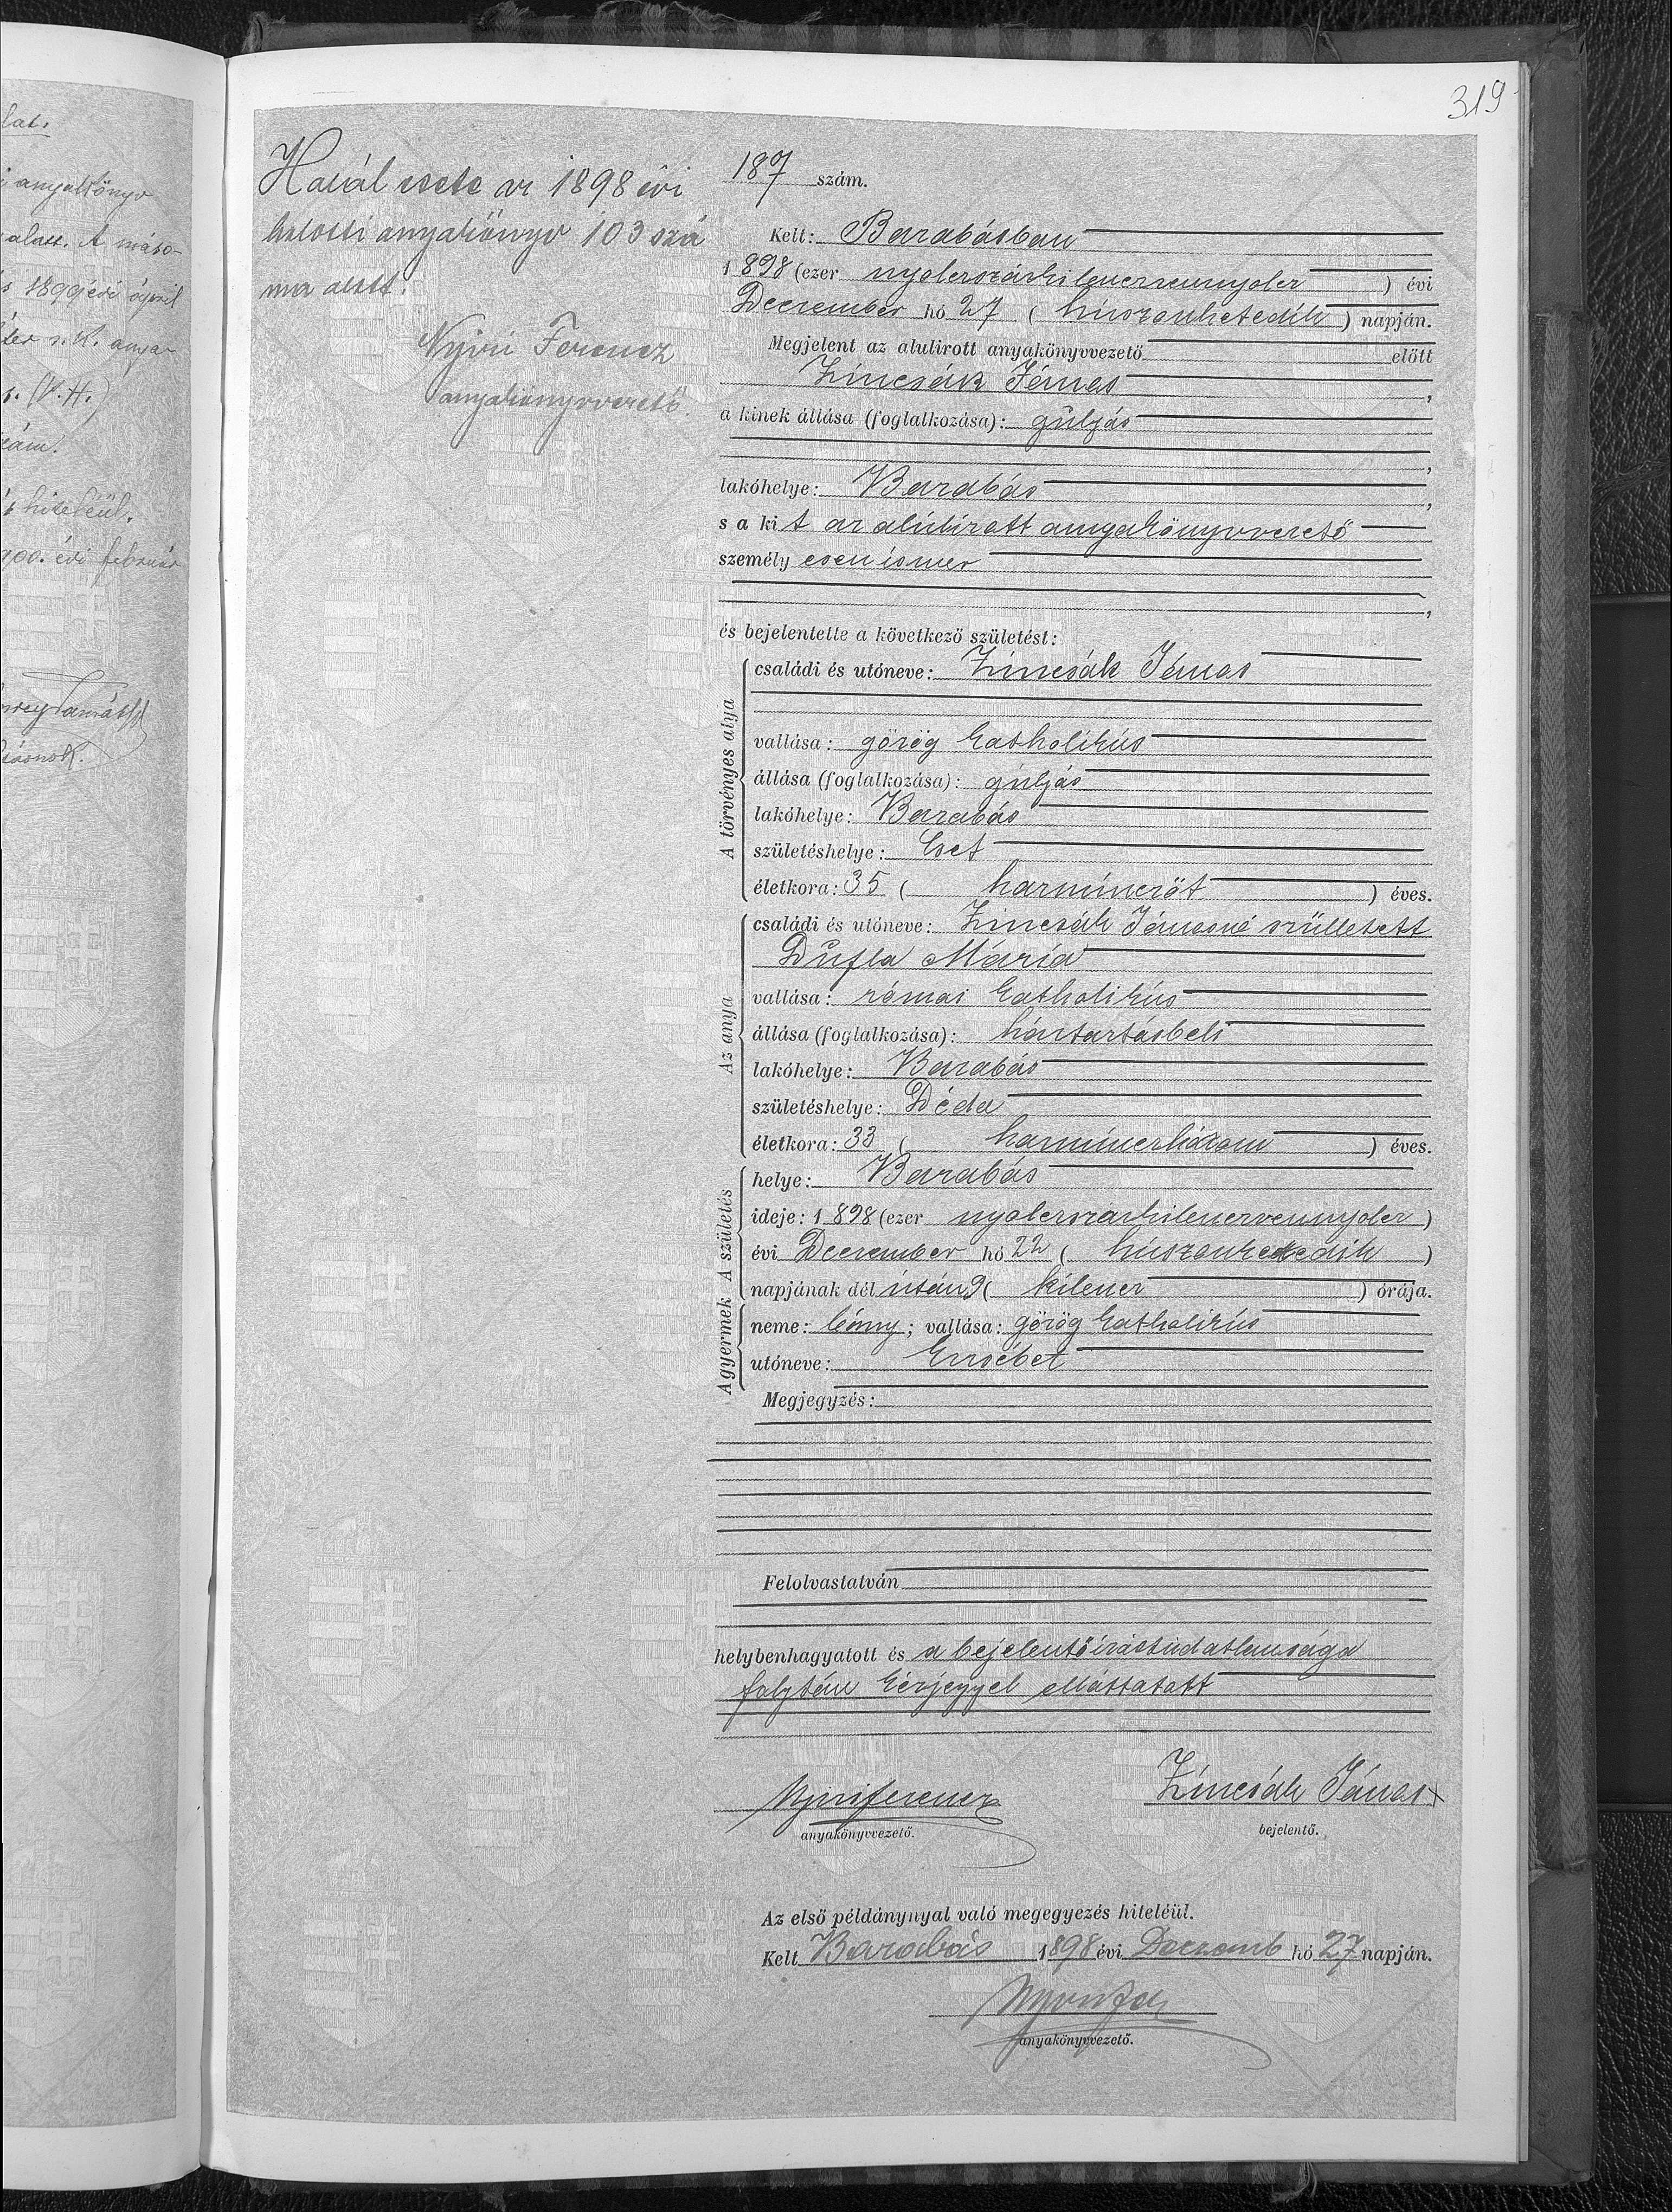 319
lat.
i anyakönyv
alatt. A máso-
s 1899 évi april
s. (P.H.)
hiteléül.
900. évi február
Halál esete az 1898 évi
halotti anyakönyv 103 szá
ma alatt.
Nyiri Ferencz
anyakönyvvezető.
187 szám.
Kelt: Barabásban
1898 (ezer nyolczszázkilenczvennyolcz) évi
Deczember hó 27 (húszonhetedik) napján.
Megjelent az alulirott anyakönyvvezető előtt
Zincsák Jánas,
a kinek állása (foglalkozása): gúljás
,
lakóhelye: Barabás,
s a kit az alúlírott anyakönyvvezető
személy esen ísmer
,
és bejelentette a következő születést:
A törvényes atya
családi és utóneve: Zincsák Jánas
vallása: görög katholikús
állása (foglalkozása): gúljás
lakóhelye: Barabás
születéshelye: Eset
életkora: 35 (harmínczöt) éves.
Az anya
családi és utóneve: Zincsák Jánasné szülletett
Dufla Mária
vallása: római katholikús
állása (foglalkozása): háztartásbeli
lakóhelye: Barabás
születéshelye: Déda
életkora: 33 (harmínczhárom) éves.
A születés
helye: Barabás
ideje: 1898 (ezer nyolczszázkilenczvennyolcz)
évi Deczember hó 22 (húszonkettedik)
napjának dél útán 9 (kilencz) órája.
A gyermek
neme: leány; vallása: görög katholikús
utóneve: Erzsébet
Megjegyzés:
Felolvastatván
helybenhagyatott és a bejelentő írástúdatlansága
folytán kézjegyyel elláttatott
Nyiri Ferencz
anyakönyvvezető.
Zincsák Jánas x
bejelentő.
Az első példánynyal való megegyezés hiteléül.
Kelt Barabás 1898 évi Deczemb hó 27 napján.
anyakönyvvezető.